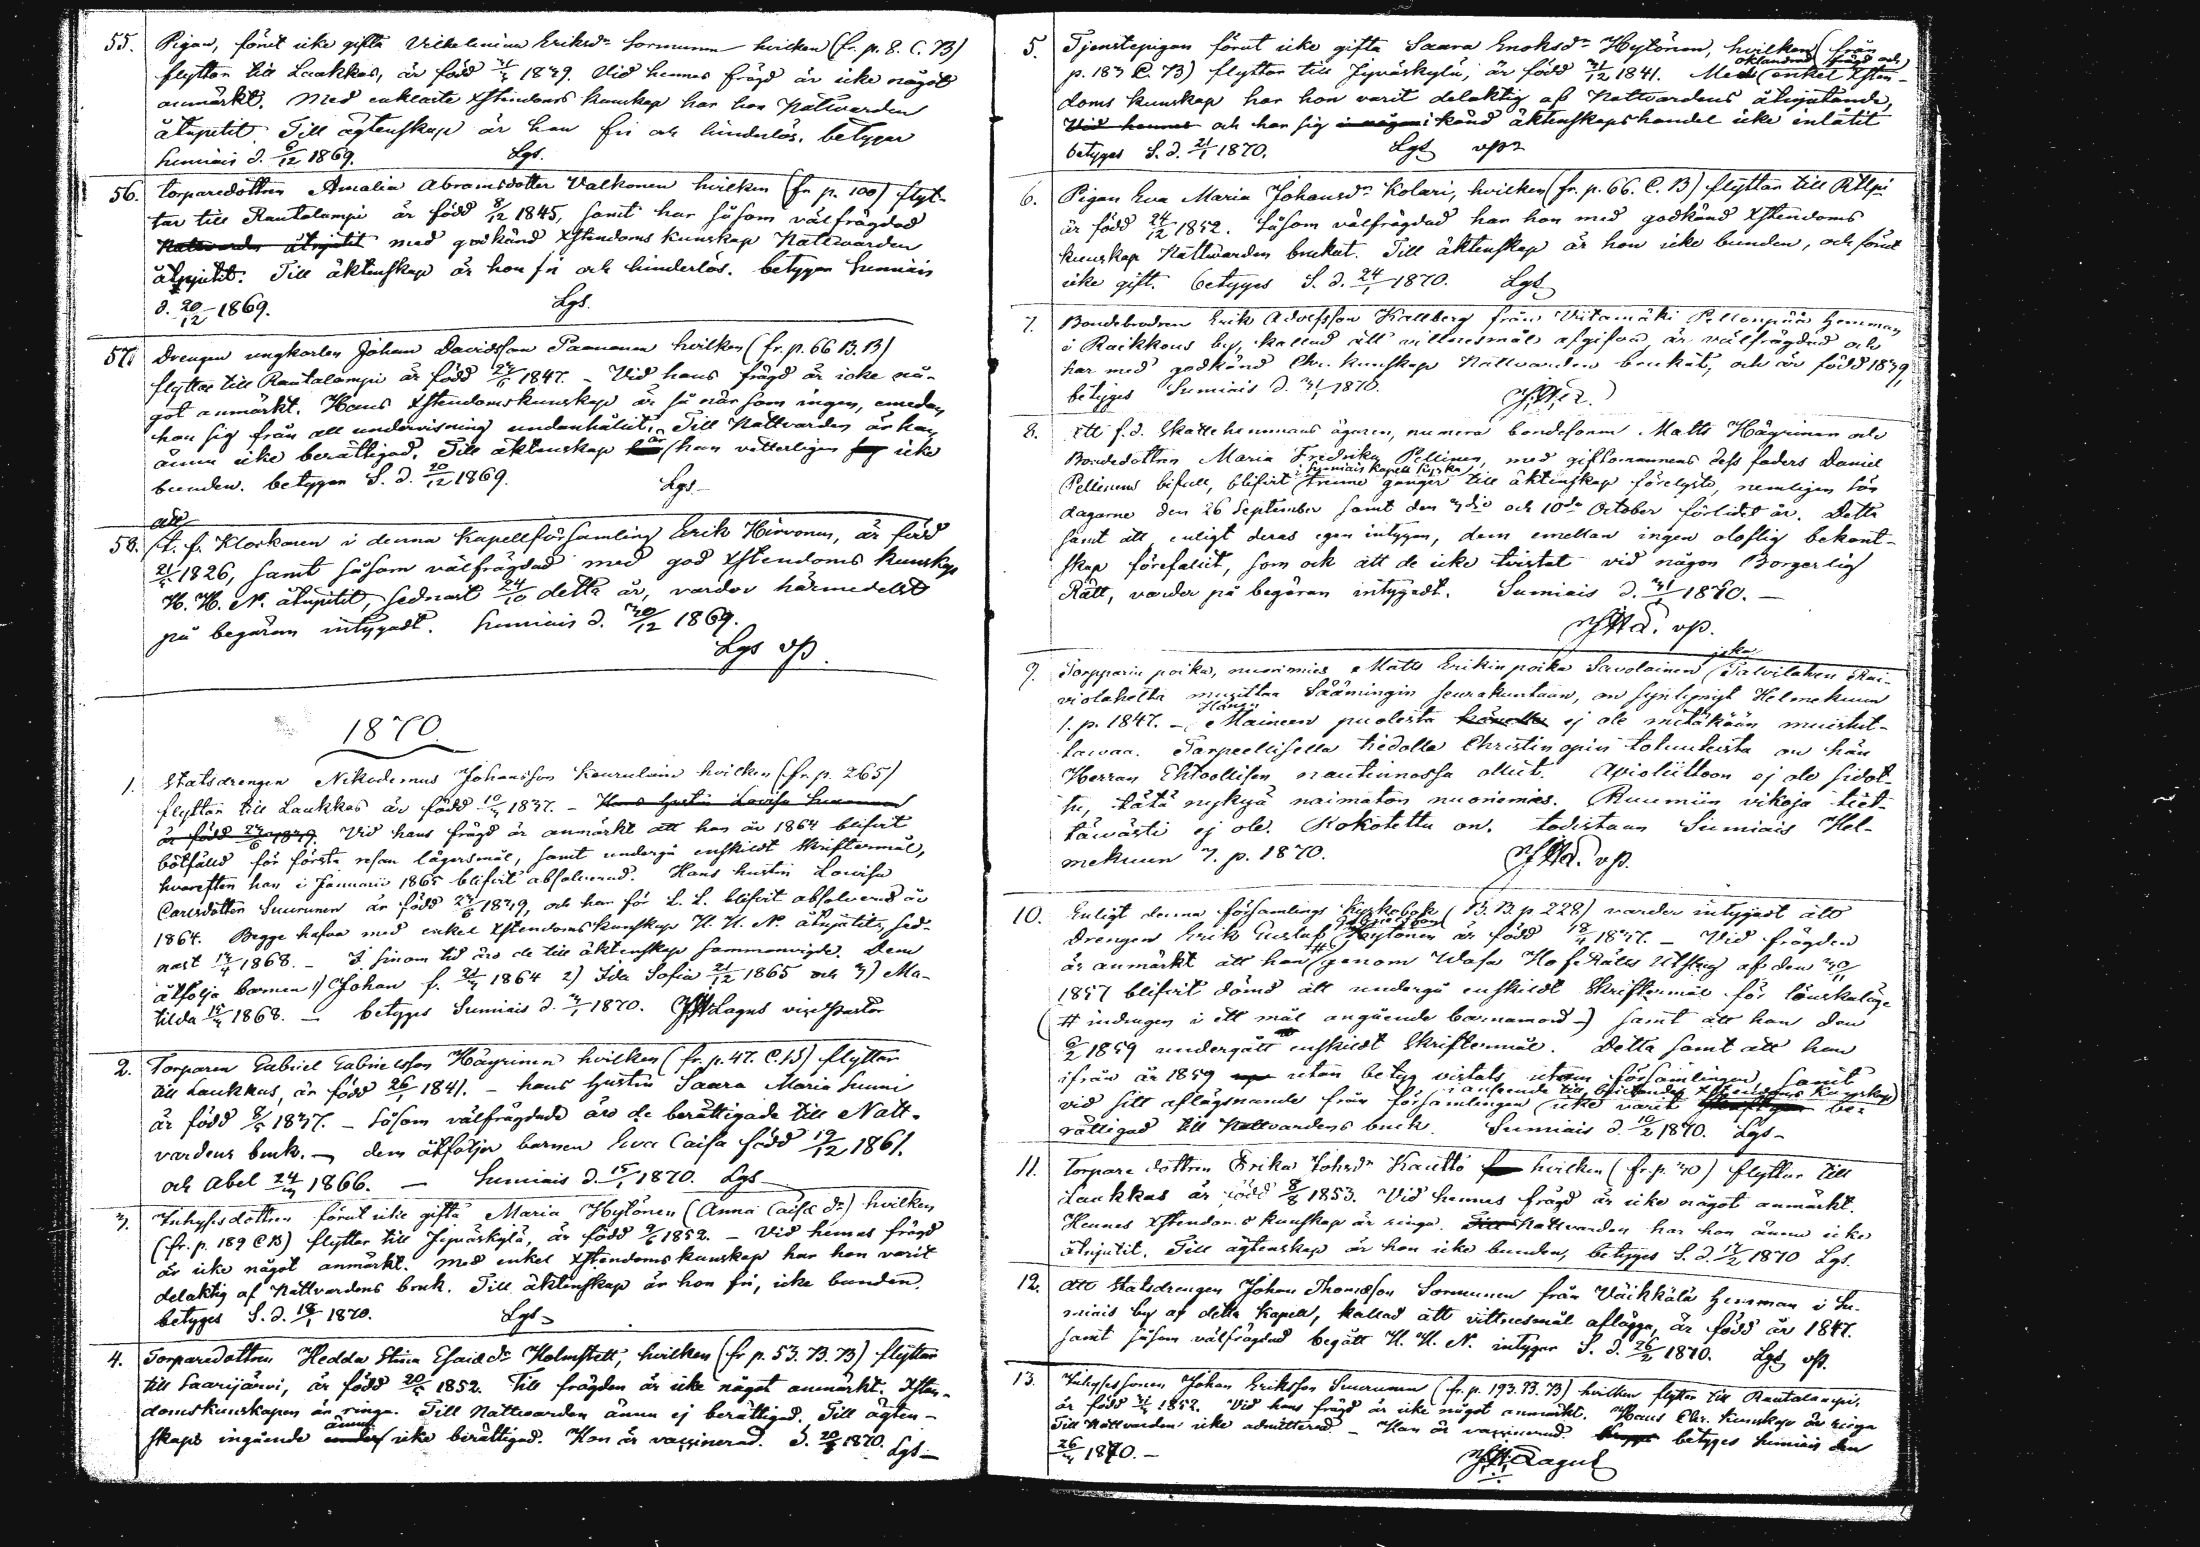 55. Pigan, förut icke gifta Vilhelmina Eriksdr Sormunen hvilken (fr. p. 8. C. B)
flyttar till Laukkas, är född 1849. Vid hennes frägd är icke något
anmärkt. Med enklaste Xstendoms kunskap har hon Nattvarden
åtnjutit. Till ägtenskap är hon fri och hinderlös. betygar
Sumiais d. 6/12 1869. Lgs.
56. Torparedottren Amalia Abramsdotter Valkonen hvilken (fr p. 100) flyt-
tar till Rautalampi är född 8/12 1845, samt har såsom välfrägdad
Nattvarden åtnjutit med godkänd Xstendoms kunskap Nattvarden
åtnjutit. Till äktenskap är hon fri och hinderlös. betygar Sumiais
d. 20/12 1869. Lgs.
57. Drengen ungkarlen Johan Davidsson Paananen hvilken (fr. p. 66 B. B)
flyttar till Rautalampi är född 1847. – Vid hans frägd är icke nå-
got anmärkt. Hans Xstendomskunskap är så när som ingen, emedan
han sig från all undervisning undanhållit. Till Nattvarden är han
ännu icke berättigad. Till äktenskap är han vitterligen icke
bunden. betygar S. d. 20/12 1869. Lgs
58. att t. f. Klockaren i denna Kapellförsamling Erik Hirvonen, är född
21/5 1826, samt såsom välfrägdad med god Xstendoms kunskap
H. H. N. åtnjutit, sednast 24/10 detta år, varder härmedelst
på begäran intygadt. Sumiais d. 30/12 1869.
Lgs vp.
1870.
1. Statsdrengen Nikodemus Johansson Kaurulain hvilken (fr. p. 265)
flyttar till Laukkas är född 1837. – Hans hustru Lovisa Suurunen
är född 1849. Vid hans frägd är anmärkt att han år 1864 blifvit
bötfälld för första resan lägersmål, samt undergå enskildt skriftermål,
hvareften han i Januarii 1865 blifvit absolverad. Hans hustru Lowisa
Carlsdotter Suurunen är född 1839, och har för L. L. blifvit absolverad år
1864. Begge hafva med enkel Xstendomskunskap H. H. N. åtnjutit, sed-
nast 1868. – I sinom tid äro de till äktenskap sammanvigde. Dem
åtfölja barnen 1) Johan f. 1864 2) Ida Sofia 21/12 1865 och 3) Ma-
tilda 1868. – betyges Sumiais d. 1870. Lagus vice Pastor
2. Torparen Gabriel Gabrielsson Häyrinen hvilken (fr. p. 47. C. B) flyttar
till Laukkas, är född 1841. – hans hustru Saara Maria Summi
är född 1837. – Såsom välfrägdade äro de berättigade till Natt-
vardens bruk. – dem åtföljer barnen Eva Caisa född 19/12 1861.
och Abel 1866. – Sumiais d. 15/1 1870. Lgs
3. Inhysesdottren förut icke gifta Maria Hytönen (Anna Caisa dr) hvilken
(fr. p. 189 C B) flyttar till Jyväskylä, är född 1852. – Vid hennes frägd
är icke något anmärkt. med enkel Xstendomskunskap har hon varit
delaktig af Nattvardens bruk. Till äktenskap är hon fri, icke bunden.
betyges S. d. 1870. Lgs
4. Torparedottren Hedda Stina Esaiedr Holmstett, hvilken (fr p. 53. B. B) flyttar
till Saarijärvi, är född 1852. Till frägden är icke något anmärkt. Xsten-
domskunskapen är ringa. Till Nattvarden ännu ej berättigad. Till ägten-
skaps ingående ännu icke berättigad. Hon är vaccinerad. S. 1870. Lgs –
5. Tjenstepigan förut icke gifta Saara Enoksdr Hytönen, hvilken (från
p. 183 C. B) flyttar till Jyväskylä, är född 31/12 1841. Med oklandrad frägd och enkel Xsten-
doms kunskap har hon varit delaktig af Nattvardens åtnjutande,
Vid hennes och han sig i någon känd äktenskapshandel icke inlåtit
betyges S. d. 21/1 1870. Lgs vp
6. Pigan Eva Maria Johansdr Kolari, hvilken (fr. p. 66. C. B) flyttar till Rtlpi
är född 24/12 1852. Såsom välfrägdad har hon med godkänd Xstendoms
kunskap Nattvarden brukat. Till äktenskap är hon icke bunden, och förut
icke gift. betyges S. d. 24/1 1870. Lgs
7. Bondebrodren Erik Adolfsson Kallberg från Viitamäki Pellonpää hemman
i Raikkous by, kallad att vittnesmål afgifva, är välfrägdad och
har med godkänd Chr. kunskap Nattvarden brukat, och är född 1839,
betyges Sumiais d. 31/1 1870.
8. Att f. d. Skattehemmans ägaren, numera bondesonen Matts Häyrinen och
Bondedottren Maria Fredrika Pellinen, med giftomannens dess faders Daniel
Pellinens bifall, blifvit i Sumiais kapell kyrka trenne gånger till äktenskap förelyste, nemligen sön
dagarne den 26 September samt den 3die och 10de October förlidet år. Detta
samt att, enligt deras egen intygan, dem emellan ingen oloflig bekant-
skap förefallit, som ock att de icke tvistat vid någon Borgerlig
Rätt, varder på begäran intygadt. Sumiais d. 31/1 1870. –
vp.
9. Torpparin poika, nuorimies Matts Erikinpoika Savolainen joka Talvilahen Rai-
violahelta muuttaa Sääningin seurakuntaan, on syntynyt Helmekuun
1. p. 1847. – Hänen Maineen puolesta ej ole mitäkään muistut-
tavaa. Tarpeellisella tiedolla Christin opin totuuksista on hän
Herran Ehtoollisen nautinnossa ollut. Avioliittoon ej ole sidot-
tu, tätä nykyä naimaton nuorimies. Ruumiin vikoja tiet-
täwästi ej ole. Rokotettu on. todistaan Sumiais Hel-
mekuun 7. p. 1870. vp.
10. Enligt denna församlings Kyrkobok (B. B. p 228) varder intygadt att
Drengen Erik Gustaf Gabrielsson Hytönen är född 1837. – Vid frägden
är anmärkt att han # genom Wasa Hof Rätts Utslag af den 30/11
1857 blifvit dömd att undergå enskildt Skriftermål för lönskaläge
(# indragen i ett mål angående barnamord –) samt att han den
6/2 1859 undergått enskildt Skriftermål. Detta samt att han
ifrån år 1859 utan betyg vistats utom församlingen, samt
vid sitt aflägsnande från församlingen i anseende till bristande Xstendoms Kunskap icke varit be-
rättigad till Nattvardens bruk. Sumiais d. 10/2 1870. Lgs –
11. Torpare dottren Erika Johsdr Kautto hvilken (fr. p. 30) flyttar till
Laukkas är född 8/8 1853. Vid hennes frägd är icke något anmärkt.
Hennes Xstendoms kunskap är ringa. Till Nattvarden har hon ännu icke
åtnjutit. Till ägtenskap är hon icke bunden, betyges S. d. 1870 Lgs.
12. Att Statsdrengen Johan Thomasson Sormunen från Väihkälä hemman i Su-
miais by af detta Kapell, kallad att vittnesmål aflägga, är född år 1847.
samt såsom välfrägdad begått H. H. N. intygar S. d. 26/2 1870. Lgs vp.
13. Inhysessonen Johan Eriksson Suurunen (fr. p. 193. B. B) hvilken flyttar till Rautalampi,
är född 1852. Vid hans frägd är icke något anmärkt. Hans Chr. kunskap är ringa
Till Nattvarden icke admitterad – Han är vaccinerad. betyges Sumiais den
1870. – Lagus